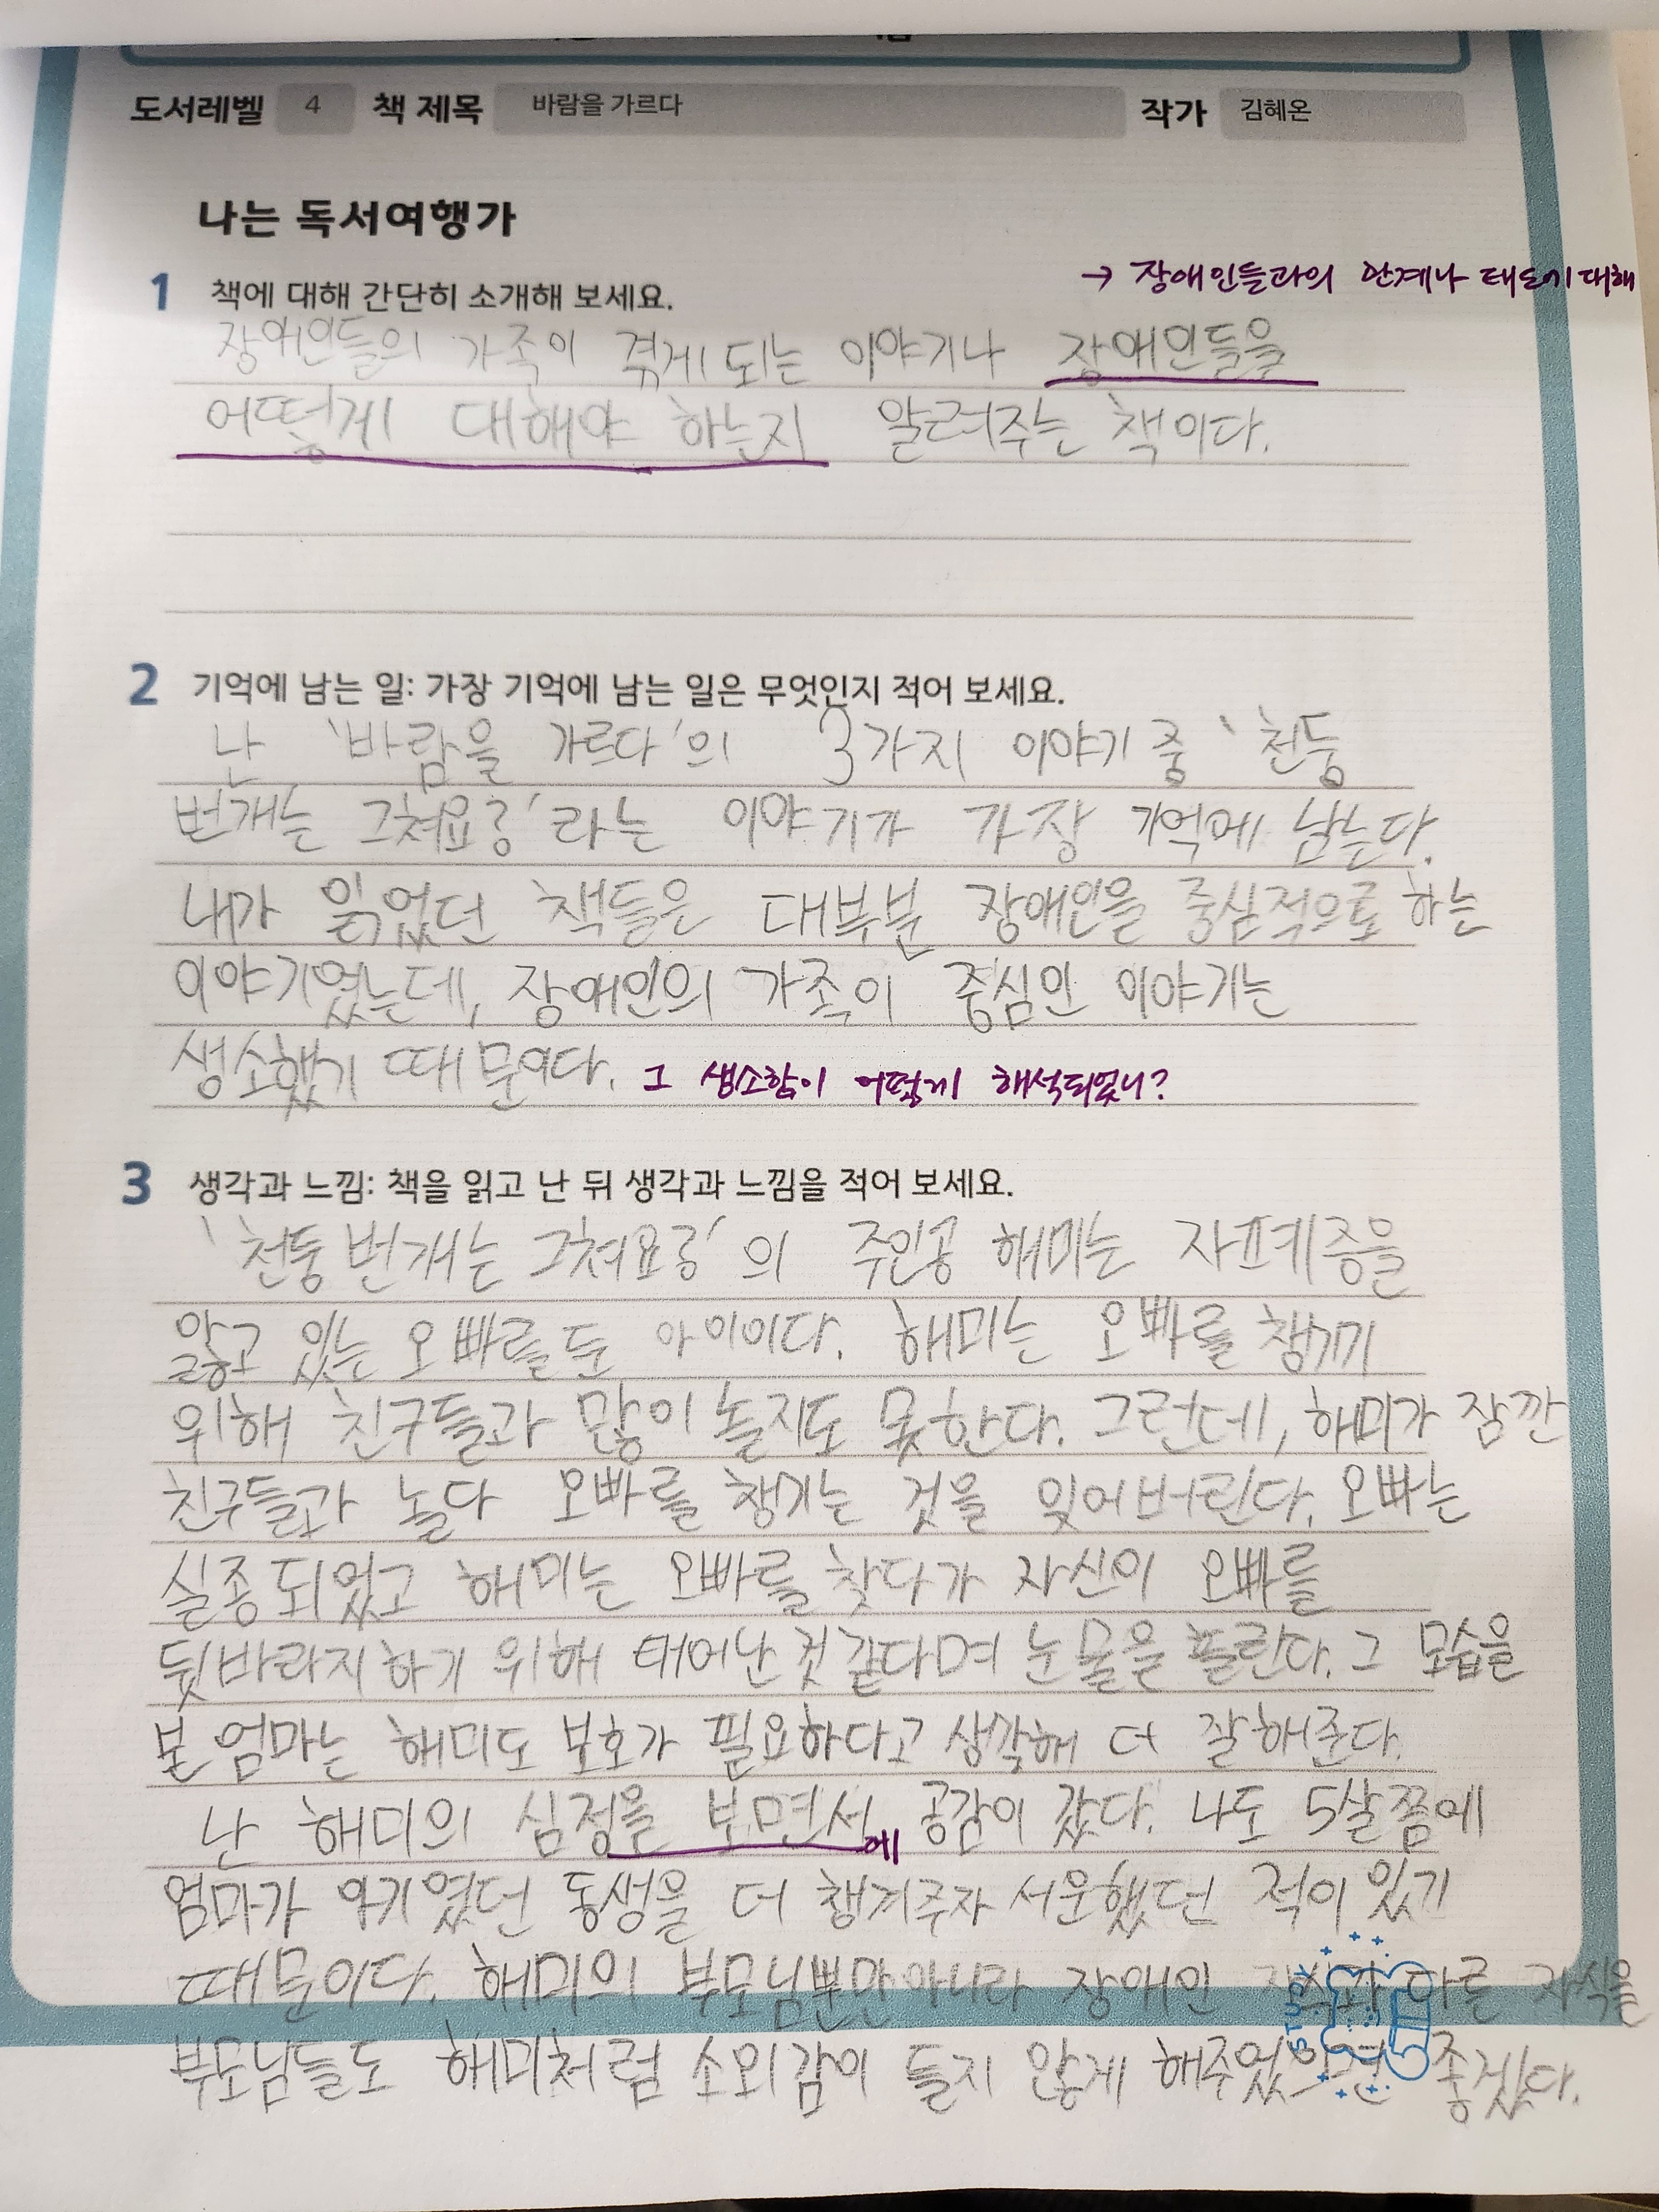 도서레벨 4 책 제목 바람을 가르다 작가 김혜온
나는 독서여행가
1 책에 대해 간단히 소개해 보세요.
→ 장애인들과의 관계나 태도에 대해
장애인들의 가족이 겪게 되는 이야기나 장애인들을
어떻게 대해야 하는지 알려주는 책이다.
2 기억에 남는 일: 가장 기억에 남는 일은 무엇인지 적어 보세요.
난 '바람을 가르다'의 3가지 이야기 중 '천둥
번개는 그쳐요?'라는 이야기가 가장 기억에 남는다.
내가 읽었던 책들은 대부분 장애인을 중심적으로 하는
이야기였는데, 장애인의 가족이 중심인 이야기는
생소했기 때문이다. 그 생소함이 어떻게 해석되었니?
3 생각과 느낌: 책을 읽고 난 뒤 생각과 느낌을 적어 보세요.
'천둥 번개는 그쳐요?'의 주인공 해미는 자폐증을
앓고 있는 오빠를 둔 아이이다. 해미는 오빠를 챙기기
위해 친구들과 많이 놀지도 못한다. 그런데, 해미가 잠깐
친구들과 놀다 오빠를 챙기는 것을 잊어버린다. 오빠는
실종되었고 해미는 오빠를 찾다가 자신이 오빠를
뒷바라지하기 위해 태어난 것 같다며 눈물을 흘린다. 그 모습을
본 엄마는 해미도 보호가 필요하다고 생각해 더 잘해준다.
난 해미의 심정을 보면서 공감이 갔다. 나도 5살쯤에
에
엄마가 아기였던 동생을 더 챙겨주자 서운했던 적이 있기
때문이다. 해미의 부모님뿐만 아니라 장애인 다른 자식을
부모님들도 해미처럼 소외감이 들지 않게 해주었으면 좋겠다.
STUDY